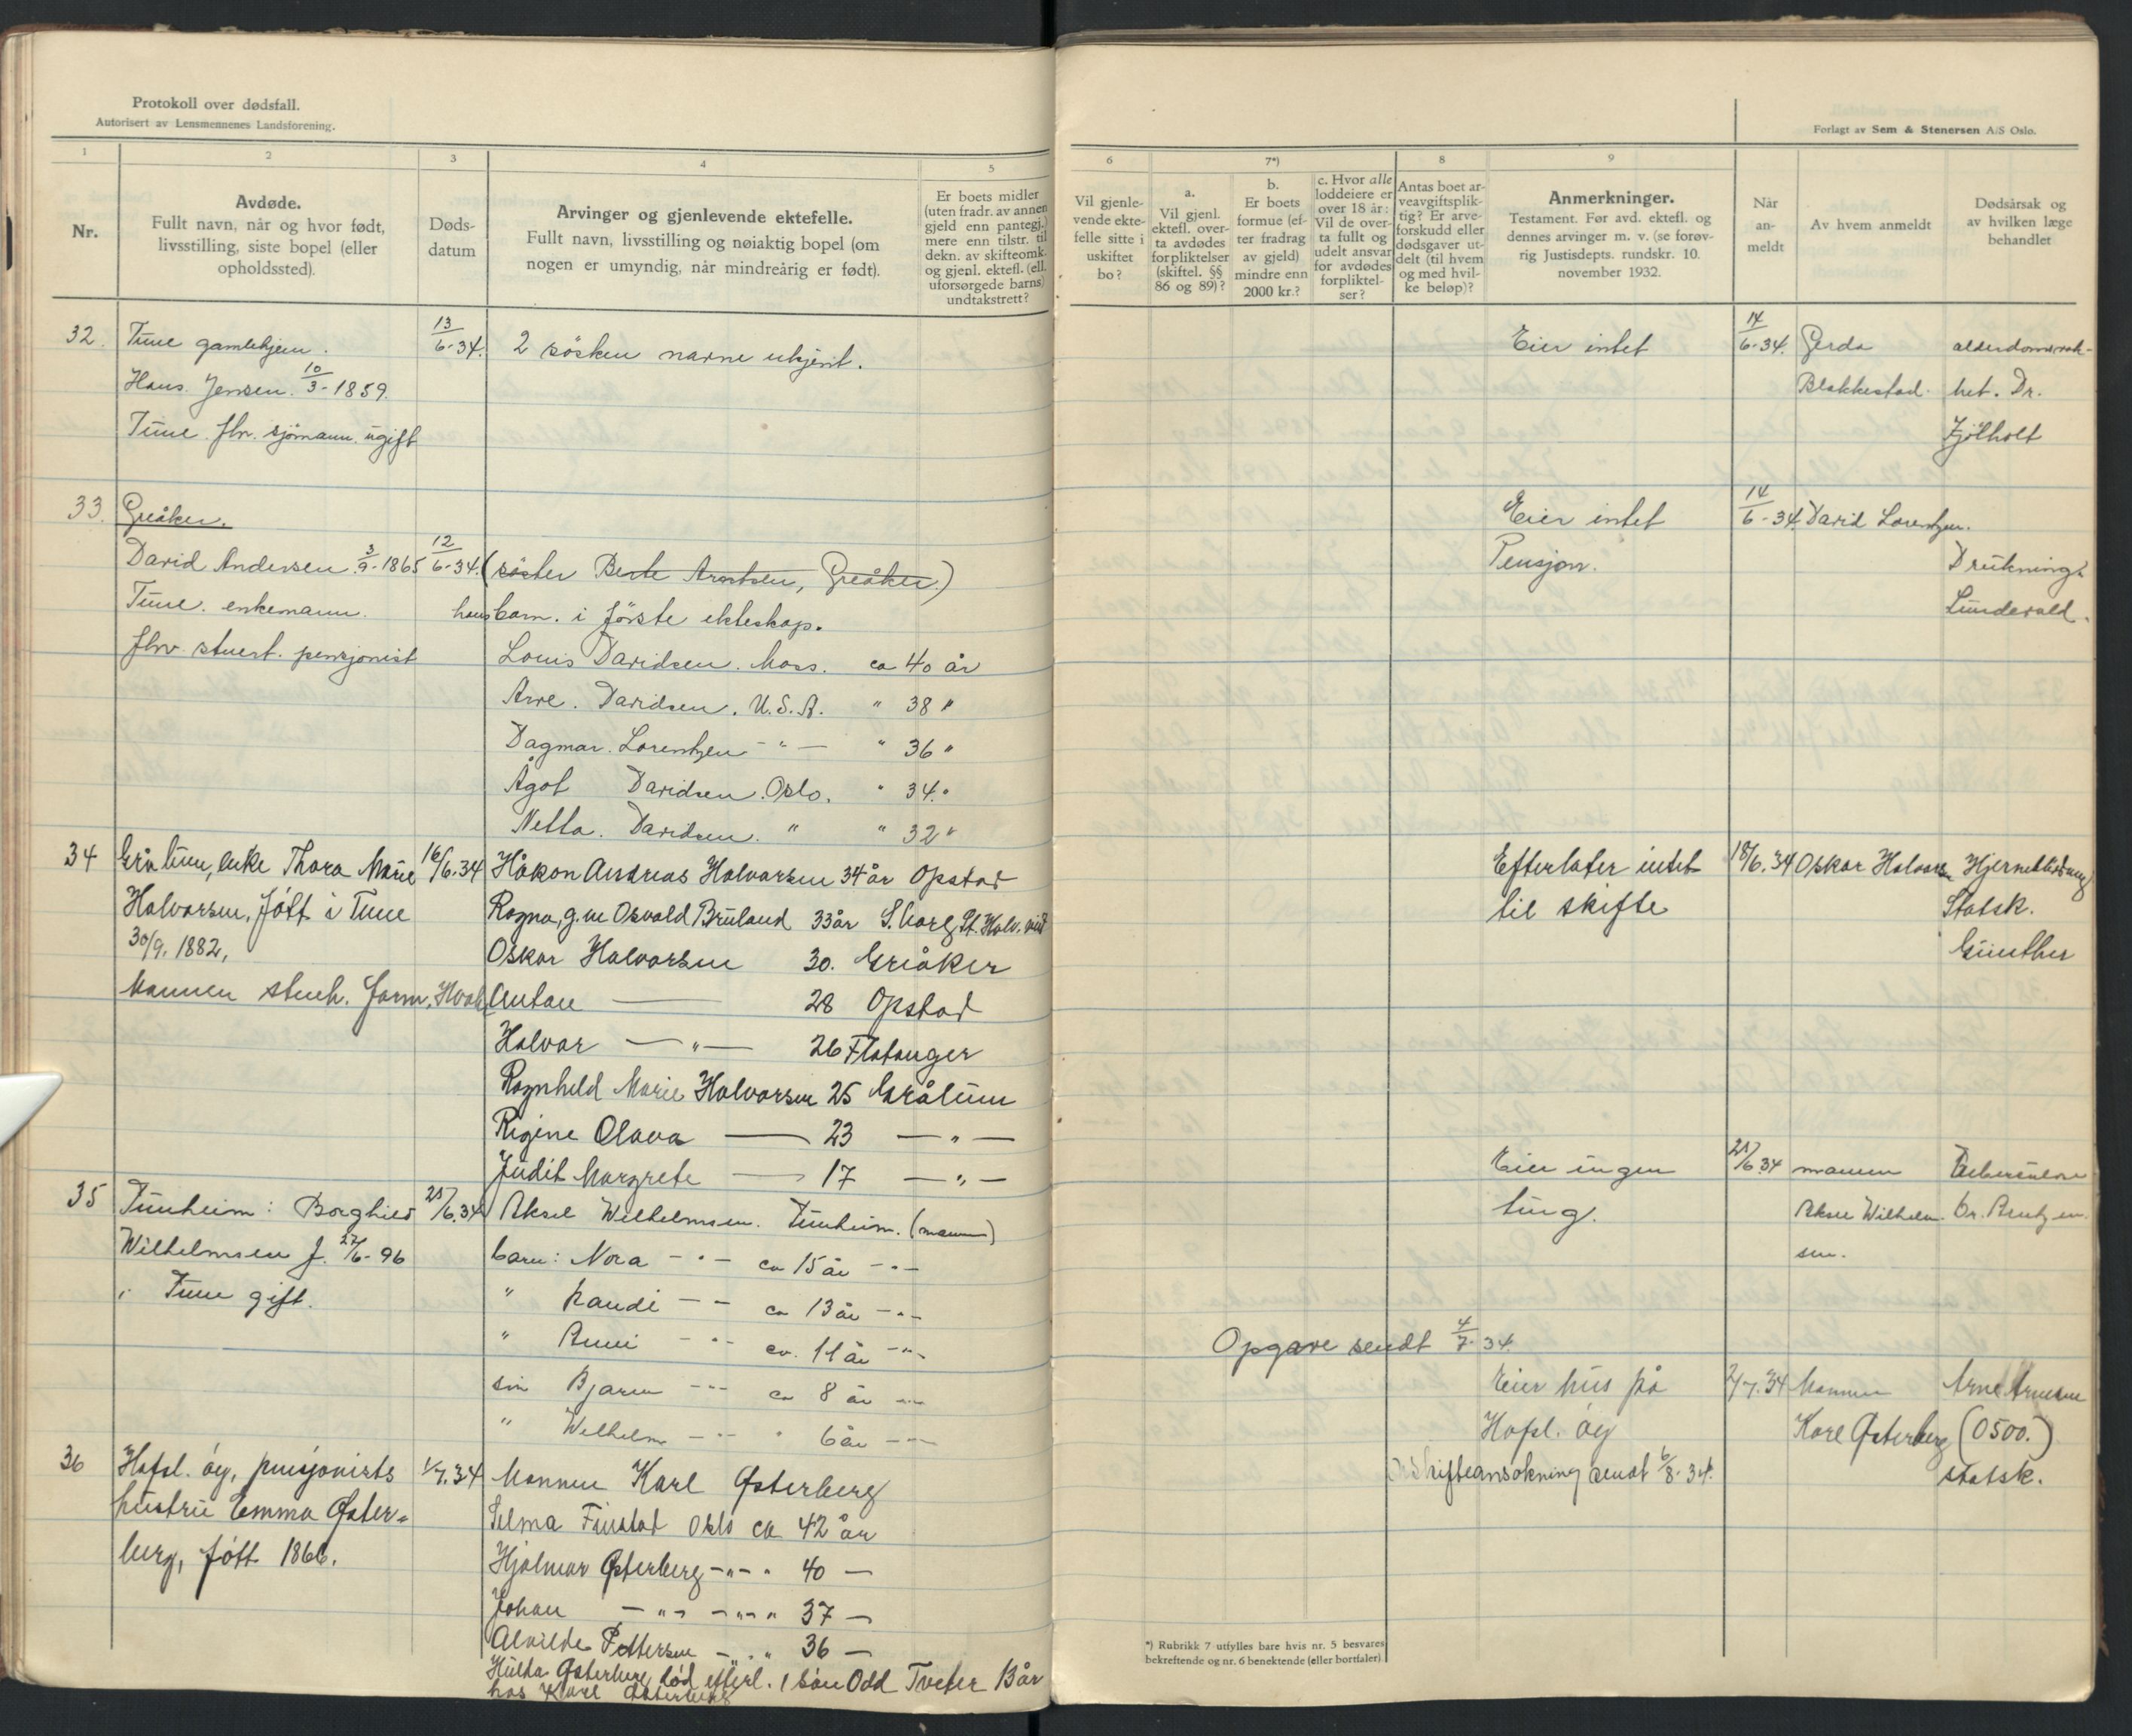 Protokoll over dødsfall.
Autorisert av Lensmennenes Landsforening.
1
2
3
4
5
Nr.
Avdøde.
Fullt navn, når og hvor født,
livsstilling, siste bopel (eller
opholdssted).
Døds-
datum
Arvinger og gjenlevende ektefelle.
Fullt navn, livsstilling og nøiaktig bopel (om
nogen er umyndig, når mindreårig er født).
Er boets midler
(uten fradr. av annen
gjeld enn pantegj.)
mere enn tilstr. til
dekn. av skifteomk.
og gjenl. ektef. (ell.
uforsørgede barns)
undtakstrett?
32. Tune gamlehjem. 13/6-34. 2 søsken navne ukjent.
Hans Jensen. 10/3-1859.
Tune. fhv. sjømann. ugift
33. Greåker.
David Andersen 3/9-1865 12/6-34. (søster Berte Arntsen, Greåker.)
Tune. enkemann. hans barn. i første ekteskap.
fhv. stuert. pensjonist Louis Davidsen. Moss. ca 40 år
Arve. Davidsen. U.S.A. " 38 "
Dagmar. Lorentzen - " - " 36 "
Ågot Davidsen. Oslo. " 34. "
Netta. Davidsen. " " 32 "
34 Grålum, enke Thora Marie 16/6.34 Håkon Andreas Halvorsen 34 år Opstad
Halvorsen, født i Tune Ragna, g.m Osvald Bruland 33 år S.borg St. Halv.
30/9. 1882, Oskar Halvorsen 30. Greåker
Mannen Anton —— 28 Opstad
Halvor — " — 26 Flatanger
Ragnhild Marie Halvorsen 25 Grålum
Rigine Olava —— 23 — " —
Judit Margrete —— 17 — " —
35 Tunheim: Borghild 25/6.34 Aksel Wilhelmsen. Tunheim. (mannen)
Wilhelmsen f. 27/6-96 barn: Nora - " - ca 15 år - " -
i Tune gift. " Randi - - ca 13 år - " -
" Anni - " - ca. 11 år - " -
søn Bjarne - " - ca 8 år - " -
" Wilhelm - " - " 6 år - " -
36 Hafsl. øy, pensjonists 1/7.34 Mannen Karl Østerberg
hustru Emma Øster-
berg, født 1866. Selma Finstad Oslo ca 42 år
Hjalmar Østerberg - " - " 40 —
Johan - " - - " - " 37 —
Alvilde Pettersen - " - " 36 —
Hulda Østerberg død efterl. 1 søn Odd Tveter 13 år
hos Karl Østerberg
Forlagt av Sem & Stenersen A/S Oslo.
6
7*)
8
9
Vil gjenle-
vende ekte-
felle sitte i
uskiftet
bo?
a.
Vil gjenl.
ektefl. over-
ta avdødes
forpliktelser
(skiftel. §§
86 og 89)?
b.
Er boets
formue (ef-
ter fradrag
av gjeld)
mindre enn
2000 kr.?
c. Hvor alle
loddeiere er
over 18 år:
Vil de over-
ta fullt og
udelt ansvar
for avdødes
forpliktel-
ser?
Antas boet ar-
veavgiftsplik-
tig? Er arve-
forskudd eller
dødsgaver ut-
delt (til hvem
og med hvil-
ke beløp)?
Anmerkninger.
Testament. Før avd. ektefl. og
dennes arvinger m. v. (se forøv-
rig Justisdepts. rundskr. 10.
november 1932.
Når
an-
meldt
Av hvem anmeldt
Dødsårsak og
av hvilken læge
behandlet
Eier intet 14/6-34. Gerda alderdomsvak-
Blakkestad. het. Dr.
Eier intet 14/6-34. David Lorentzen.
Pensjon. Drukning.
Lundevald.
Efterlater intet 18/6.34 Oskar Halvorsen Hjerneblødning
til skifte Statsk.
Günther
Eier ingen 25/6.34 mannen Tuberkulose
ting. Aksel Wilhelm- Dr. Arntzen.
sen.
Opgave sendt 4/7-34.
Eier hus på 2/7.34 Mannen
Hafsl. øy Karl Østerberg (0500.)
Skifteansøkning sendt 6/8-34. statsk.
*) Rubrikk 7 utfylles bare hvis nr. 5 besvares
bekreftende og nr. 6 benektende (eller bortfaler).